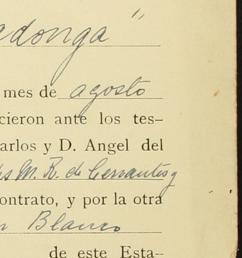 adonga"
mes de agosto
cieron ante los tes-
arlos y D. Angel del
M. R. de Cervantes y
ontrato, y por la otra
n Blanco
de este Esta-